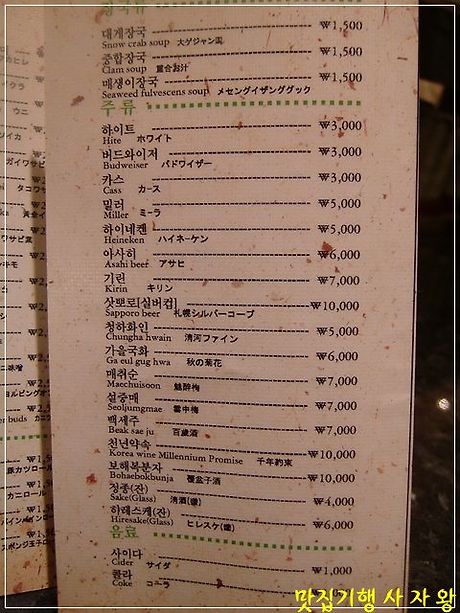 장국류
대게장국 ₩1,500
Snow crab soup 大ゲジャン국
중합장국 ₩1,500
Clam soup 重合お汁
매생이장국 ₩1,500
Seaweed fulvescens soup メセングイザンググック
주류
하이트 ₩3,000
Hite ホワイト
버드와이저 ₩3,000
Budweiser バドワイザー
카스 ₩3,000
Cass カース
밀러 ₩5,000
Miller ミーラ
하이네켄 ₩5,000
Heineken ハイネーケン
아사히 ₩6,000
Asahi beer アサヒ
기린 ₩7,000
Kirin キリン
삿뽀로[실버컵] ₩10,000
Sapporo beer 札幌シルバーコープ
청하화인 ₩5,000
Chungha hwain 清河ファイン
가을국화 ₩6,000
Ga eul gug hwa 秋の菊花
매취순 ₩7,000
Maechuisoon 魅醉梅
설중매 ₩7,000
Seoljungmae 雲中梅
백세주 ₩7,000
Beak sae ju 百歲酒
천년약속 ₩10,000
Korea wine Millennium Promise 千年約束
보해복분자 ₩10,000
Bohaebokbunja 覆盆子酒
정종(잔) ₩4,000
Sake(Glass) 清酒(盞)
하레스케(잔) ₩6,000
Hiresake(Glass) ヒレスケ(盞)
음료
사이다 ₩1,000
Cider サイダ
콜라
Coke コーラ
맛집기행 사자왕